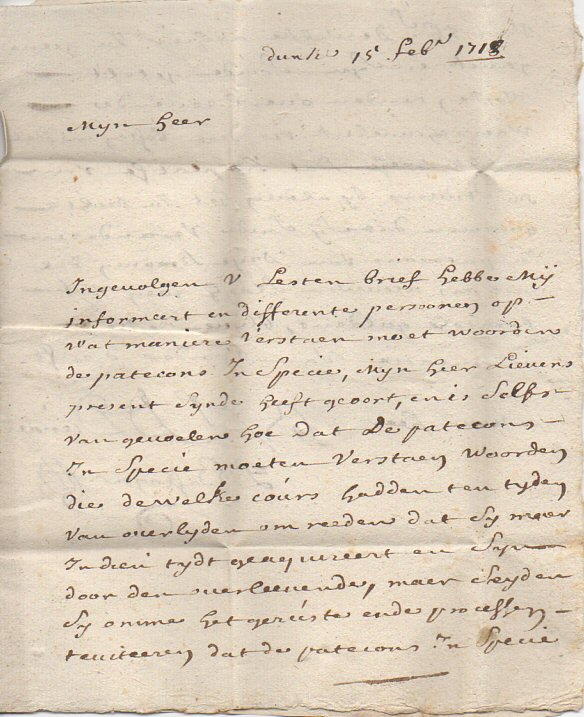 dunk 15 feb 1718
Mijn heer
Ingevolgen V Lesten brief hebbe Mij
informeert en differente personen op
wat maniere verstaen moet woorden
de patecons In Specie, Mijn heer Lievens
present Sijnde heeft gehoort, en is Selfs
van gevoelen hoe dat De patecons
In Specie moeten verstaen woorden
die dewelke cours hadden ten tyden
van overlyden om reeden dat Sy maer
In dien tydt geaquireert en Syn
door den overleevende, maer Seyden
Sy omme het geruste ende processen
te viteeren dat de patecons In Specie